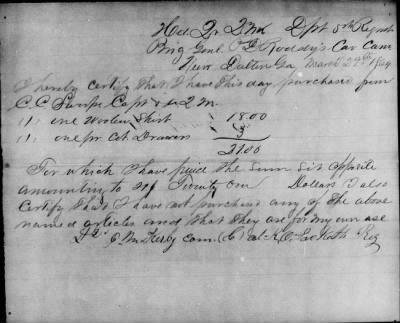 Hed Qr 2nd Dpt 5th Regmt
Brig Genl P D Roddy's Cav Cam
Near Dalton Ga March 29th 1864
I hereby certify that I have this day purchased from
C.C. Sharpe Capt & a.Q.M.
11; one Woolen Shirt 18.00
11; one pr Cot Drawers 3
21.00
For which I have paid the sum Set opposite
amounting to Twenty One Dollars I also
certify that I have not purchased any of the above
named articles and that they are for my own use
Lt Com. Co Reg